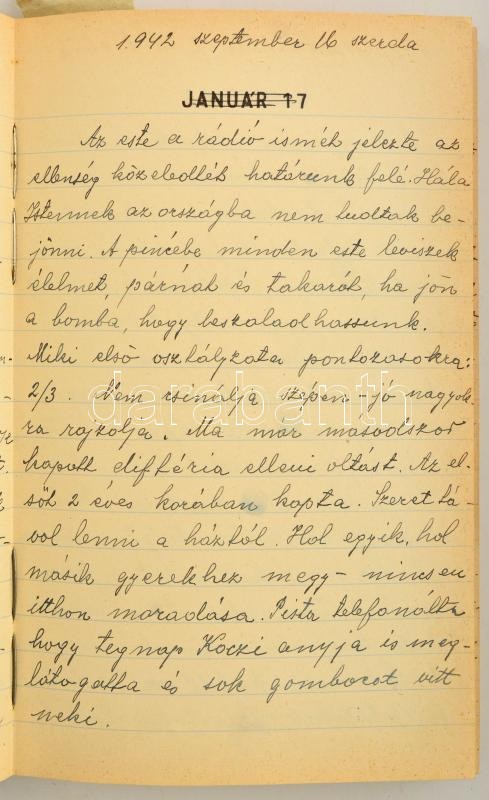 1942 szeptember 16 szerda
JANUÁR 17
Az este a rádió ismét jelezte az
ellenség közeledtét határunk felé. Hála
Istennek az országba nem tudtak be-
jönni. A pincébe minden este leviszek
élelmet, párnát és takarót, ha jön
a bomba, hogy beszaladhassunk.
Miki első osztályzata pontozásokra:
2/3. Nem csinálja szépen - jó nagyok-
ra rajzolja. Ma már másodszor
kapott diftéria elleni oltást. Az el-
sőt 2 éves korában kapta. Szeret tá-
vol lenni a háztól. Hol egyik, hol
másik gyerekhez megy - nincsen
itthon maradása. Pista telefonálta
hogy tegnap Koczi anyja is meg-
látogatta és sok gombócot vitt
neki.
darabanth